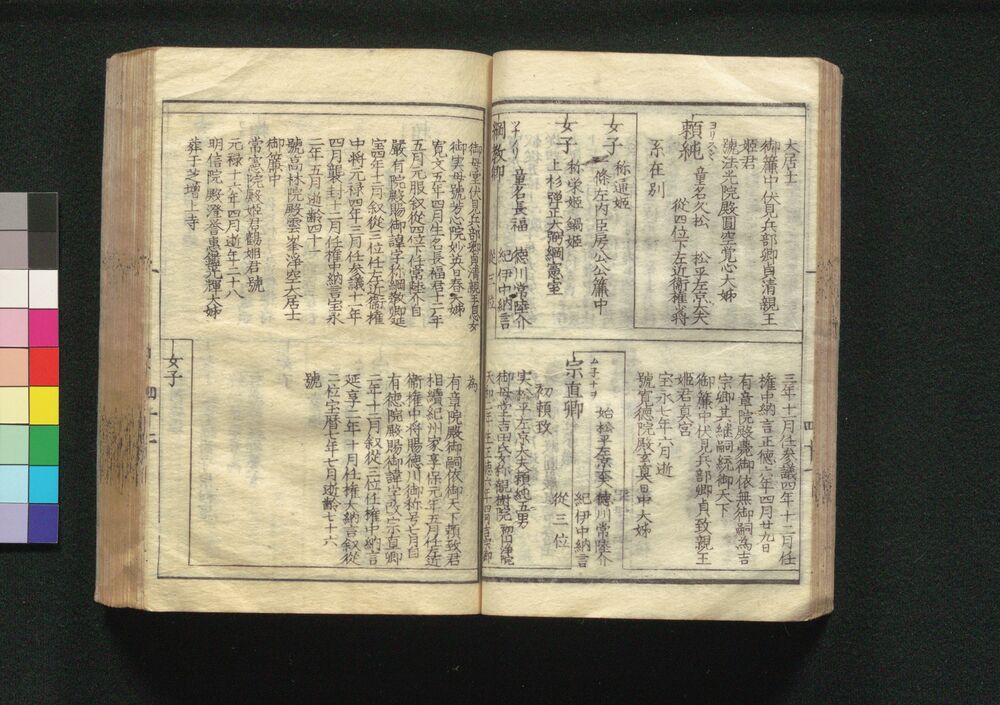 大居士
御簾中伏見兵部卿貞清親王
姫君
號法光院殿圓空覚心大姉
ヨリスミ
頼純 童名久松 松平左京大夫
從四位下左近衛権少将
系在別
女子 称通姫
一條左内臣房公簾中
女子 称栄姫 鍋姫
上杉弾正大弼綱憲室
綱教卿 童名長福 徳川常陸介
紀伊中納言
三年十二月任参議四年十二月任
権中納言正徳六年四月廿九日
有章院殿薨御依無御嗣為吉
宗卿其継嗣統御天下
御簾中伏見兵部卿貞致親王
姫君真宮
宝永七年六月逝
號寛徳院殿玄真日中大姉
ムネナヲ
宗直卿 始松平左京大夫 徳川常陸介
紀伊中納言
初頼致 從三位
実松平左京大夫頼純五男
御母堂吉田氏称観樹院
御母堂伏見兵部卿貞清親王息女
御実母號芳心院妙英日春大姉
寛文五年四月生名長福君十二年
五月元服叙從四位下任常陸介自
嚴有院殿賜御諱字称綱教延
宝四年十二月叙從三位任左近衛権
中将元禄四年三月任参議十一年
四月襲封十二月任権中納言宝永
二年五月逝齢四十一
號高林院殿雲峯浄空大居士
御簾中
常憲院殿姫君鶴姫君號
元禄十六年四月逝年二十八
明信院殿澄誉惠鑑光輝大姉
葬于芝増上寺
為
有章院殿御嗣依御天下頼致君
相續紀州家享保元年五月任左近
衛権中将賜徳川御称号七月自
有徳院殿賜御諱字改宗直卿
二年十二月叙從三位任権中納言
延享二年十月任権大納言叙從
二位宝暦七年七月逝齢七十六
號
女子